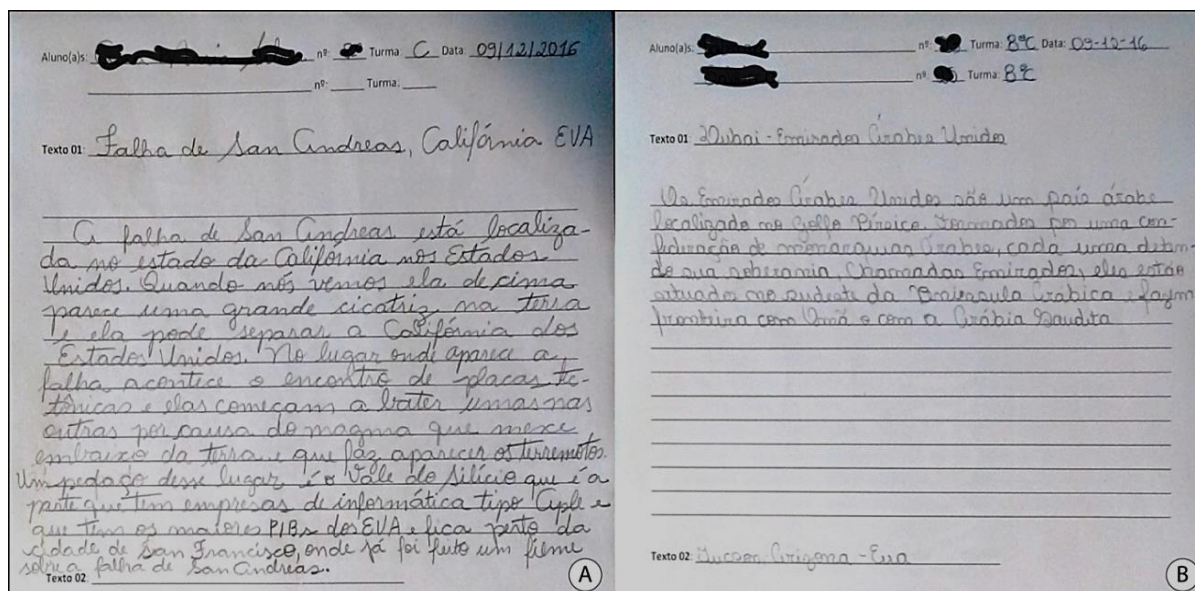 Aluno(a)s: nº: Turma: C Data: 09/12/2016
nº: Turma:
Texto 01: Falha de San Andreas, Califórnia EUA
A falha de San Andreas está localiza-
da no estado da Califórnia nos Estados
Unidos. Quando nós vemos ela de cima
parece uma grande cicatriz na terra
e ela pode separar a Califórnia dos
Estados Unidos. No lugar onde aparece a
falha acontece o encontro de placas te-
tônicas e elas começam a bater umas nas
outras por causa do magma que mexe
embaixo da terra e que faz aparecer os terremotos.
Um pedaço desse lugar é o Vale do Silício que é a
parte que tem empresas de informática tipo Aple e
que tem os maiores PIBs dos EUA e fica perto da
cidade de San Francisco, onde já foi feito um filme
sobre a falha de San Andreas.
Texto 02:
A
Aluno(a)s: nº: Turma: 8ºC Data: 09-12-16
nº: Turma: 8ºC
Texto 01: Dubai - Emirados Árabes Unidos
Os Emirados Árabes Unidos são um país árabe
localizado no Golfo Pérsico formados por uma con-
federação de monarquias árabes, cada uma deten-
do sua soberania, chamadas Emirados, eles estão
situados no sudeste da Península Arábica e fazem
fronteira com Omã e com a Arábia Saudita
Texto 02: Tucson, Arizona - Eua
B